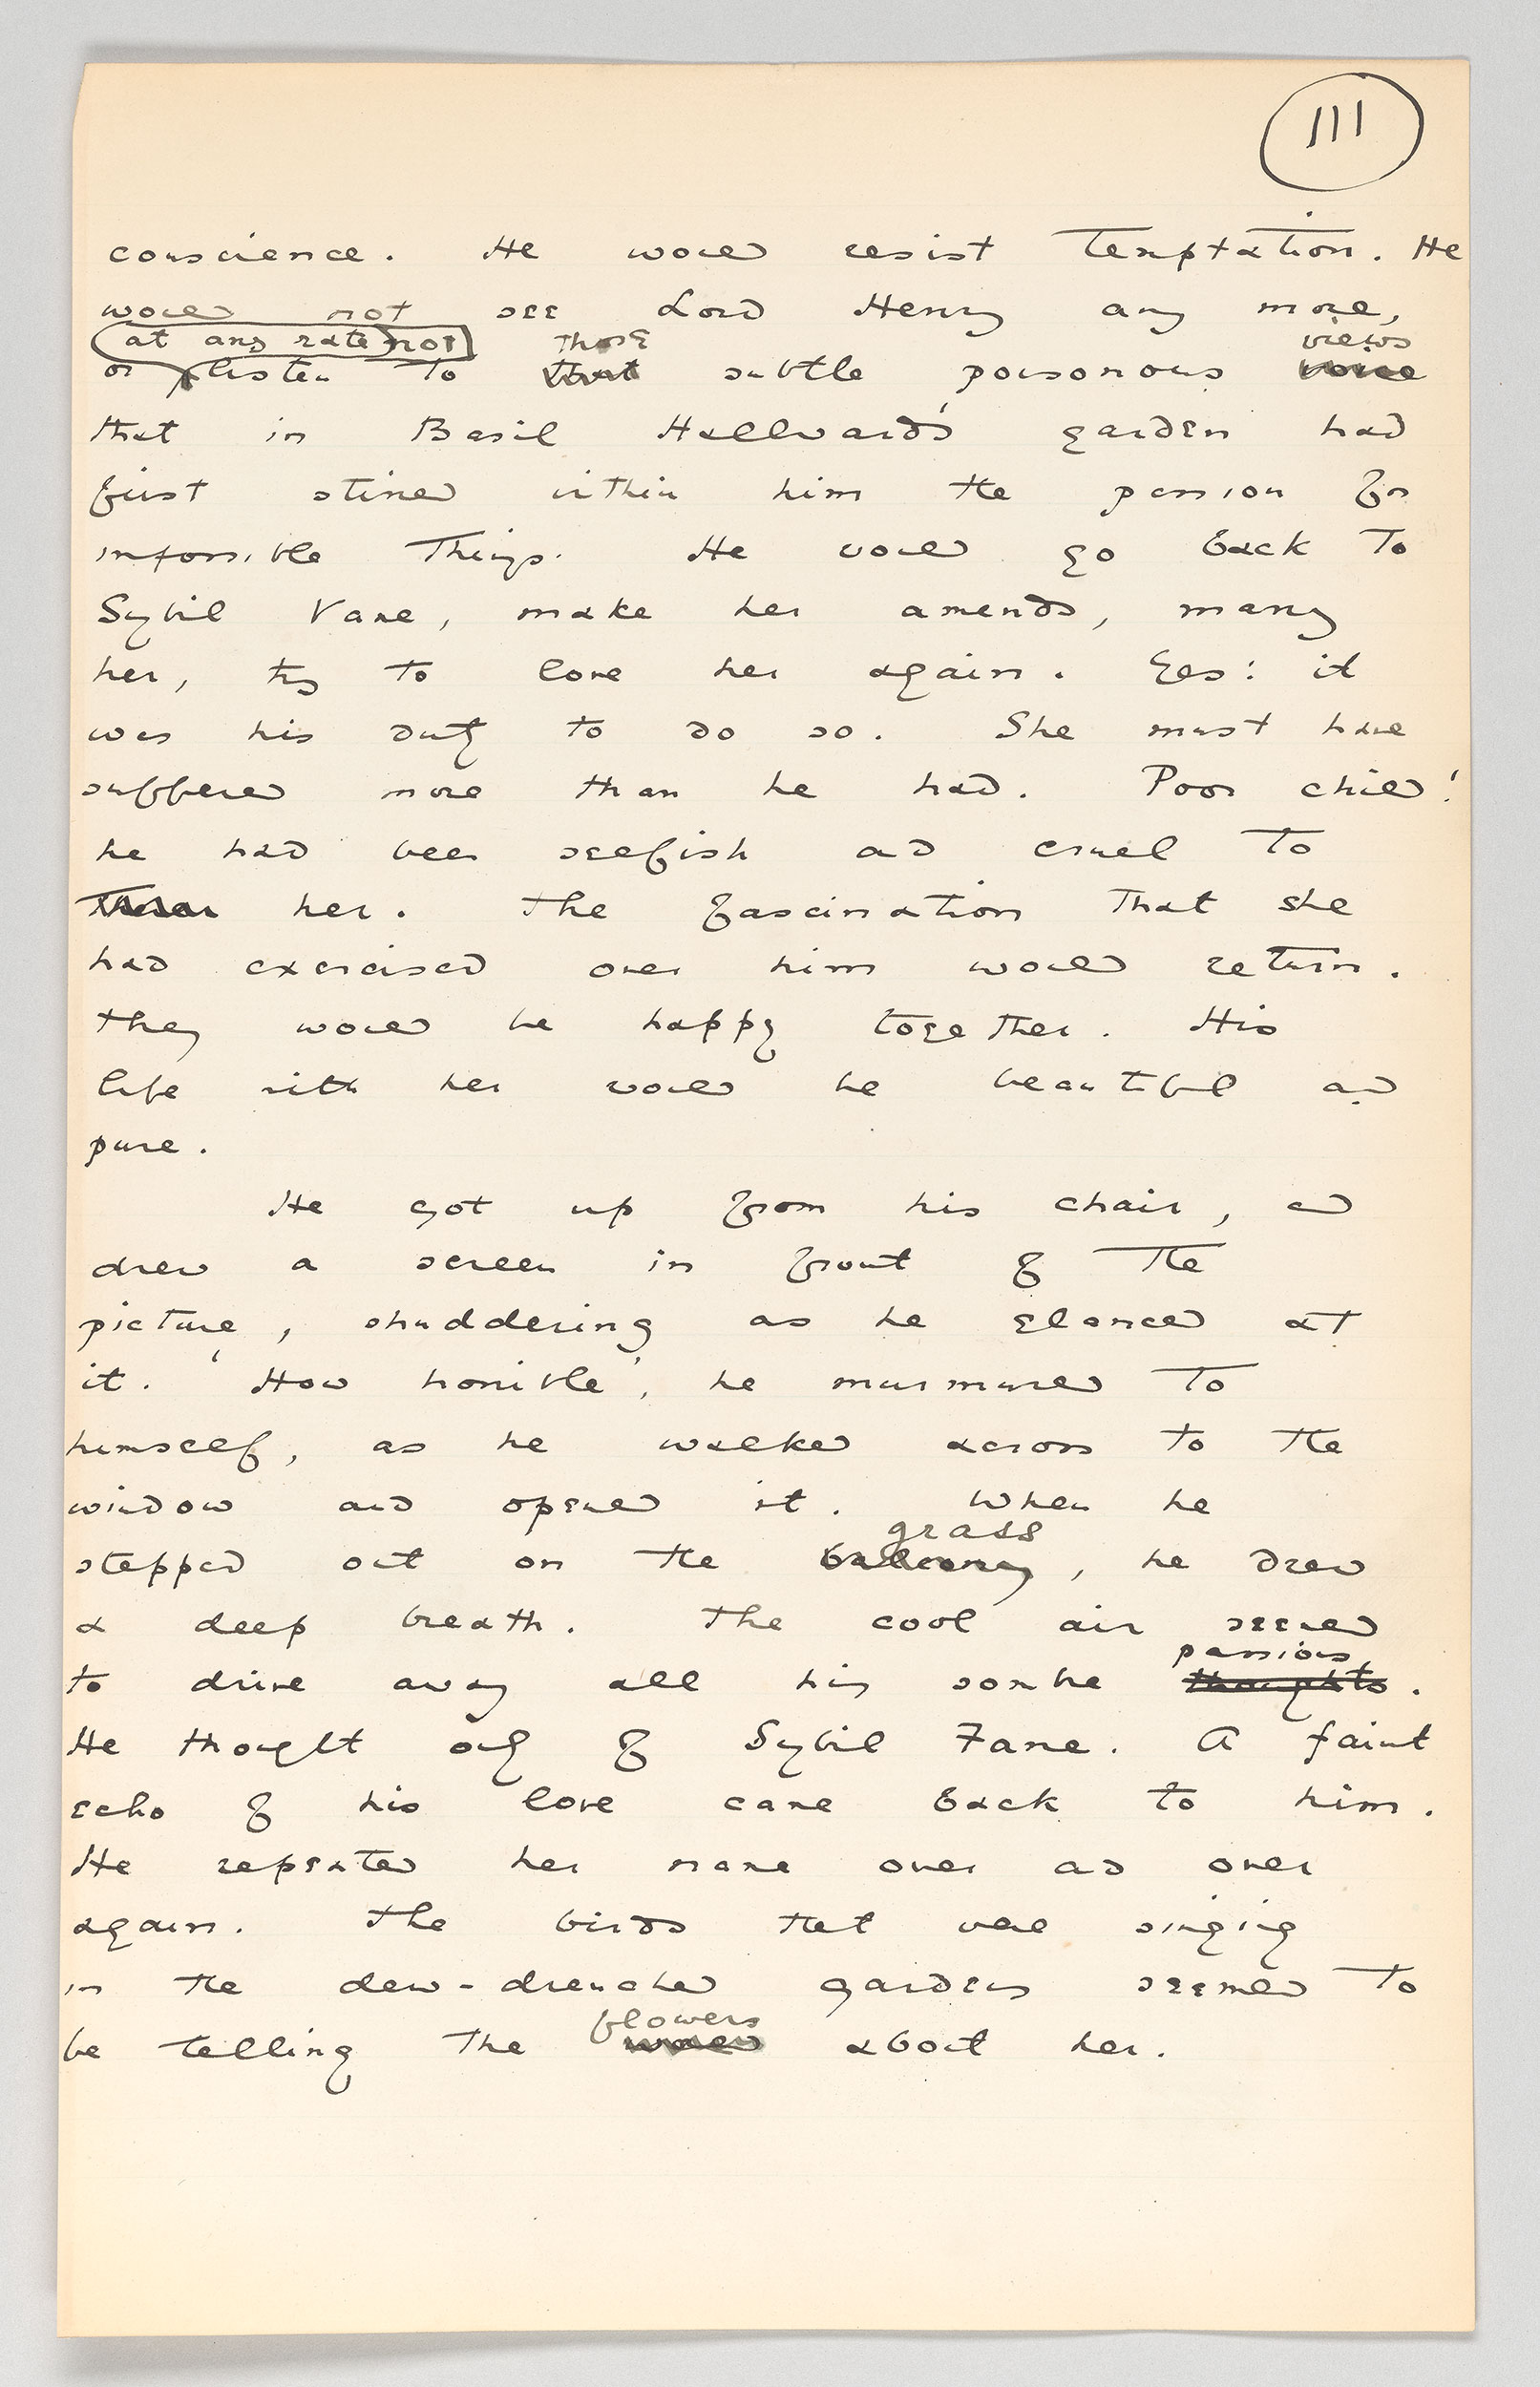 111
conscience. He would resist temptation. He
would not see Lord Henry any more,
at any rate not those views
or listen to that subtle poisonous voice
that in Basil Hallward's garden had
first stirred within him the passion for
impossible things. He would go back to
Sybil Vane, make her amends, marry
her, try to love her again. Yes: it
was his duty to do so. She must have
suffered more than he had. Poor child!
he had been selfish and cruel to
her. The fascination that she
had exercised over him would return.
they would be happy together. His
life with her would be beautiful and
pure.
He got up from his chair, and
drew a screen in front of the
picture, shuddering as he glanced at
it. 'How horrible', he murmured to
himself, as he walked across to the
window and opened it. When he
grass
stepped out on the balcony, he drew
a deep breath. The cool air seemed
passions
to drive away all his sombre thoughts.
He thought only of Sybil Fane. A faint
echo of his love came back to him.
He repeated her name over and over
again. The birds that were singing
in the dew-drenched garden seemed to
flowers
be telling the about her.